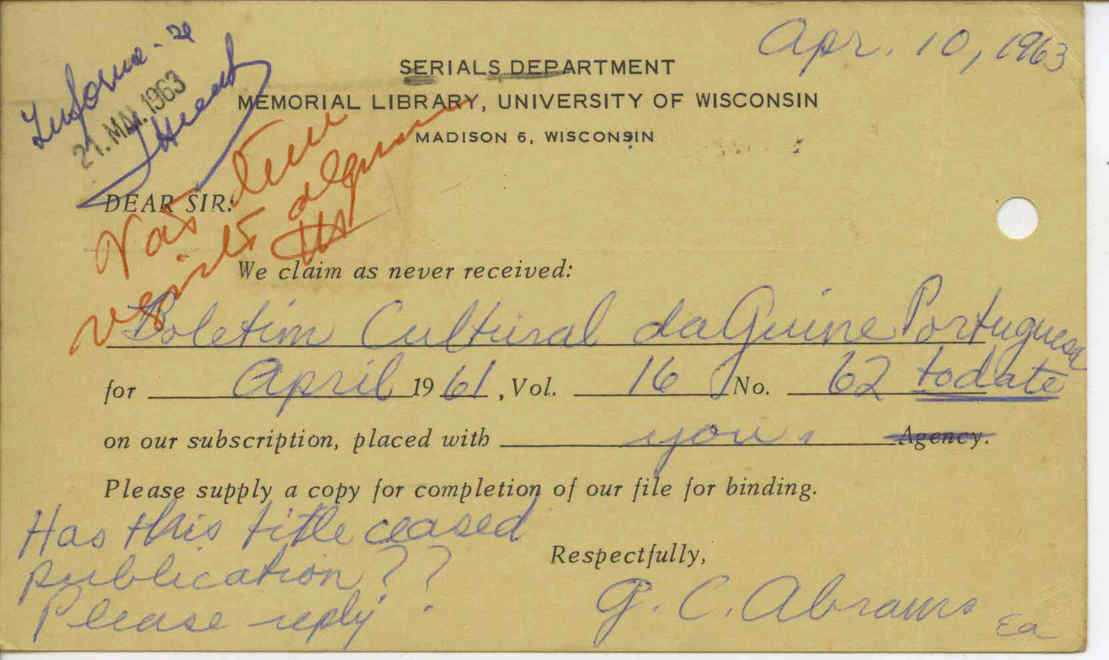 Apr. 10, 1963
Informe-se
21. MAI. 1963
SERIALS DEPARTMENT
MEMORIAL LIBRARY, UNIVERSITY OF WISCONSIN
MADISON 6, WISCONSIN
DEAR SIR:
Não tem
registo algum
We claim as never received:
Boletim Cultural da Guine Portuguesa
for April 1961, Vol. 16 No. 62 to date
on our subscription, placed with you. Agency.
Please supply a copy for completion of our file for binding.
Has this title ceased
publication??
Please reply.
Respectfully,
G. C. Abrams
Ea